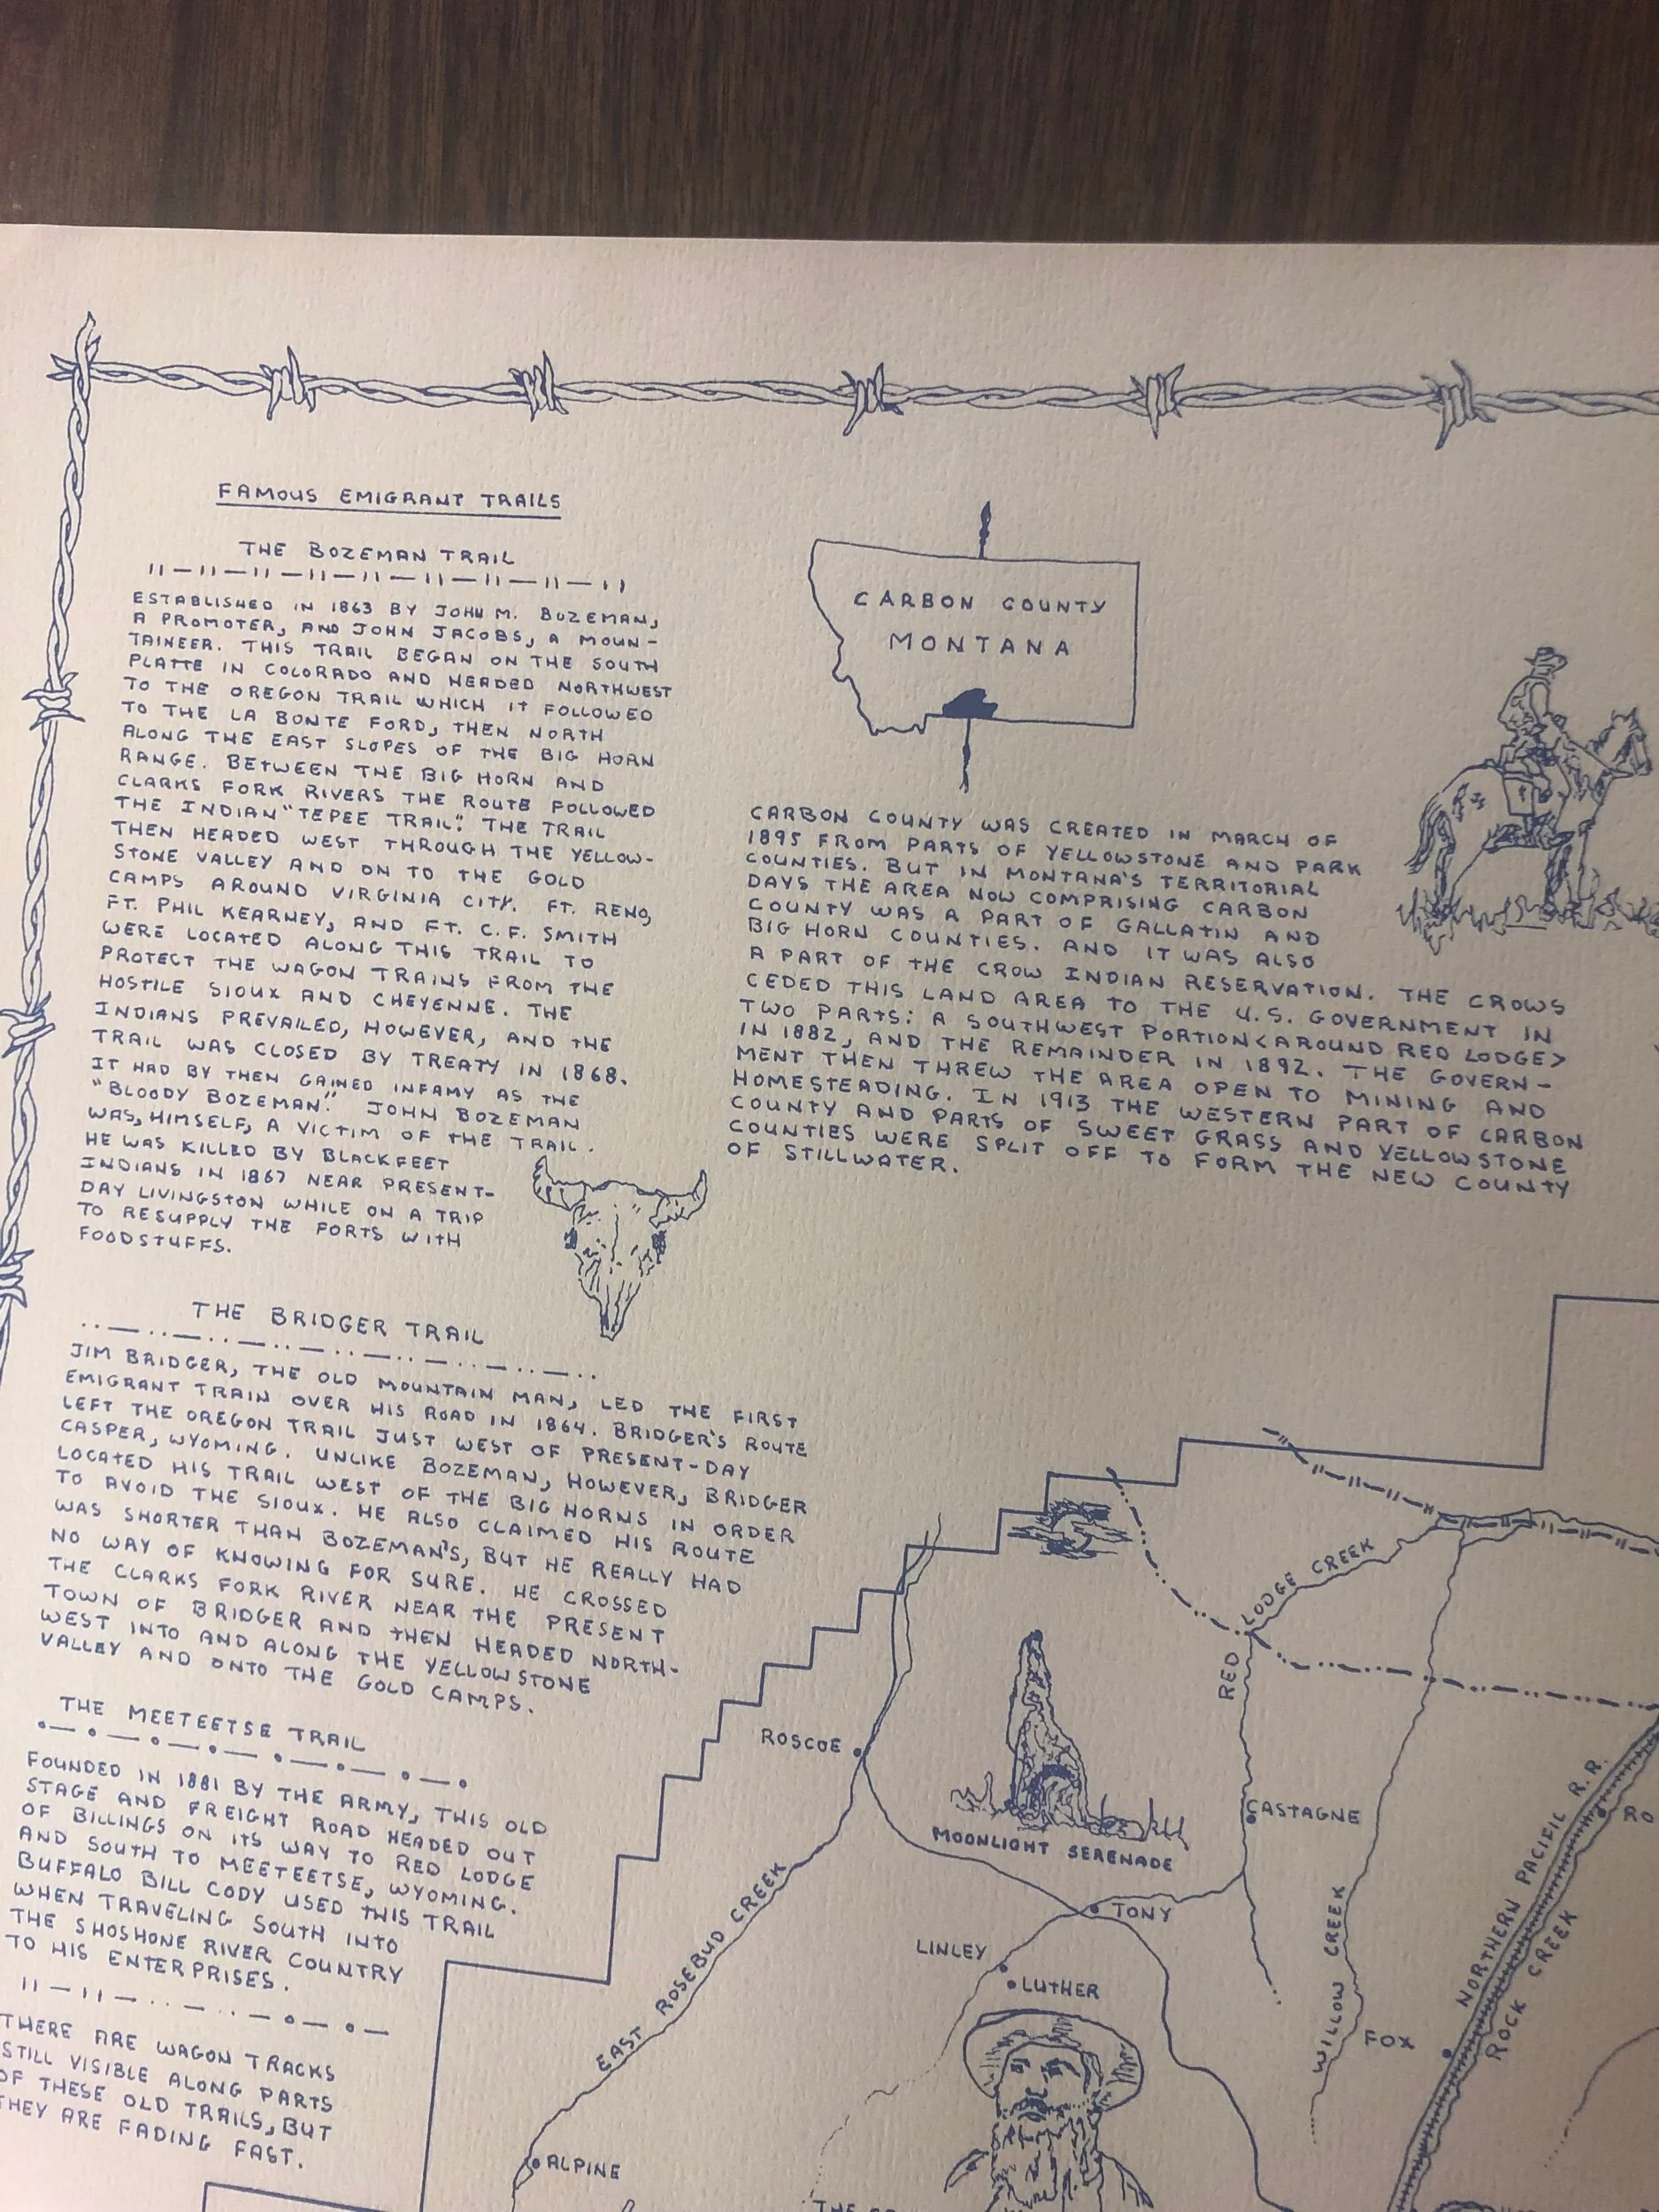 FAMOUS EMIGRANT TRAILS
THE BOZEMAN TRAIL
ESTABLISHED IN 1863 BY JOHN M. BOZEMAN,
A PROMOTER, AND JOHN JACOBS, A MOUN-
TAINEER. THIS TRAIL BEGAN ON THE SOUTH
PLATTE IN COLORADO AND HEADED NORTHWEST
TO THE OREGON TRAIL WHICH IT FOLLOWED
TO THE LA BONTE FORD, THEN NORTH
ALONG THE EAST SLOPES OF THE BIG HORN
RANGE. BETWEEN THE BIG HORN AND
CLARKS FORK RIVERS THE ROUTE FOLLOWED
THE INDIAN "TEPEE TRAIL". THE TRAIL
THEN HEADED WEST THROUGH THE YELLOW-
STONE VALLEY AND ON TO THE GOLD
CAMPS AROUND VIRGINIA CITY. FT. RENO,
FT. PHIL KEARNEY, AND FT. C.F. SMITH
WERE LOCATED ALONG THIS TRAIL TO
PROTECT THE WAGON TRAINS FROM THE
HOSTILE SIOUX AND CHEYENNE. THE
INDIANS PREVAILED, HOWEVER, AND THE
TRAIL WAS CLOSED BY TREATY IN 1868.
IT HAD BY THEN GAINED INFAMY AS THE
"BLOODY BOZEMAN". JOHN BOZEMAN
WAS, HIMSELF, A VICTIM OF THE TRAIL.
HE WAS KILLED BY BLACKFEET
INDIANS IN 1867 NEAR PRESENT-
DAY LIVINGSTON WHILE ON A TRIP
TO RESUPPLY THE FORTS WITH
FOODSTUFFS.
THE BRIDGER TRAIL
JIM BRIDGER, THE OLD MOUNTAIN MAN, LED THE FIRST
EMIGRANT TRAIN OVER HIS ROAD IN 1864. BRIDGER'S ROUTE
LEFT THE OREGON TRAIL JUST WEST OF PRESENT-DAY
CASPER, WYOMING. UNLIKE BOZEMAN, HOWEVER, BRIDGER
LOCATED HIS TRAIL WEST OF THE BIG HORNS IN ORDER
TO AVOID THE SIOUX. HE ALSO CLAIMED HIS ROUTE
WAS SHORTER THAN BOZEMAN'S, BUT HE REALLY HAD
NO WAY OF KNOWING FOR SURE. HE CROSSED
THE CLARKS FORK RIVER NEAR THE PRESENT
TOWN OF BRIDGER AND THEN HEADED NORTH-
WEST INTO AND ALONG THE YELLOWSTONE
VALLEY AND ONTO THE GOLD CAMPS.
THE MEETEETSE TRAIL
FOUNDED IN 1881 BY THE ARMY, THIS OLD
STAGE AND FREIGHT ROAD HEADED OUT
OF BILLINGS ON ITS WAY TO RED LODGE
AND SOUTH TO MEETEETSE, WYOMING.
BUFFALO BILL CODY USED THIS TRAIL
WHEN TRAVELING SOUTH INTO
THE SHOSHONE RIVER COUNTRY
TO HIS ENTERPRISES.
THERE ARE WAGON TRACKS
STILL VISIBLE ALONG PARTS
OF THESE OLD TRAILS, BUT
THEY ARE FADING FAST.
CARBON COUNTY
MONTANA
CARBON COUNTY WAS CREATED IN MARCH OF
1895 FROM PARTS OF YELLOWSTONE AND PARK
COUNTIES. BUT IN MONTANA'S TERRITORIAL
DAYS THE AREA NOW COMPRISING CARBON
COUNTY WAS A PART OF GALLATIN AND
BIG HORN COUNTIES. AND IT WAS ALSO
A PART OF THE CROW INDIAN RESERVATION. THE CROWS
CEDED THIS LAND AREA TO THE U.S. GOVERNMENT IN
TWO PARTS: A SOUTHWEST PORTION <AROUND RED LODGE>
IN 1882, AND THE REMAINDER IN 1892. THE GOVERN-
MENT THEN THREW THE AREA OPEN TO MINING AND
HOMESTEADING. IN 1913 THE WESTERN PART OF CARBON
COUNTY AND PARTS OF SWEET GRASS AND YELLOWSTONE
COUNTIES WERE SPLIT OFF TO FORM THE NEW COUNTY
OF STILLWATER.
RED LODGE CREEK
ROSCOE
MOONLIGHT SERENADE
CASTAGNE
NORTHERN PACIFIC R.R.
RO
EAST ROSEBUD CREEK
TONY
LINLEY
LUTHER
WILLOW CREEK
FOX
ROCK CREEK
ALPINE